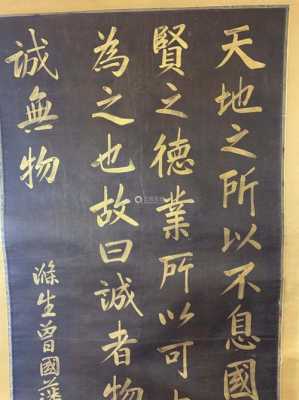 天地之所以不息國
賢之德業所以可大
為之也故曰誠者物
誠無物
滌生曾國藩